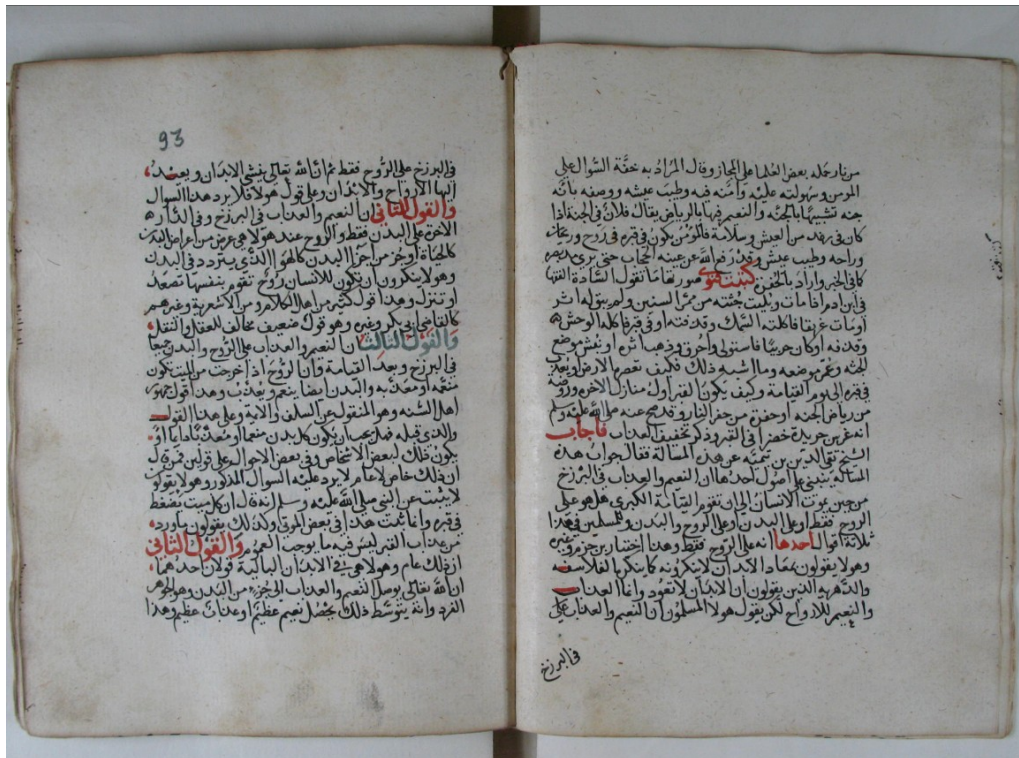 من نار حمله بعض العلما على المجاز وقال المراد به خفة السوال على
المومن وسهولته عليه وامنه فيه وطيب عيشه ووصفه بانه
جنه تشبيها بالجنه والنعيم فيها بالرياض يقال فلان في الجنة اذا
كان في رغد من العيش وسلامة فالمومن يكون في قبره في روح وريحان
وراحه وطيب عيش وقد رفع الله عن عينه الحجاب حتى يرى
كما في الخبر واراد بالحفرة كتبت فتوى صورتها ما تقول السادة الفقها
في ابن ادم اذا مات وبليت جثته من ممر السنين ولم يبق له اثر
او مات غريقا فاكلته السمك وقد فته او في قبر فاكله الوحش
وقد فنه او كان حربيا فاستولى واحرق وذهب اثره او نبش موضع
الجثه وغير موضعه وما اشبه ذلك فكيف تعصره الارض او يعذب
في قبره الى يوم القيامة وكيف يكون القبر اول منازل الاخره وروضة
من رياض الجنه او حفرة من حفر النار وقد صح عنه صلى الله عليه وسلم
انه غرس جريدة خضرا في القبر وذكر تخفيف العذاب فاجاب
الشيخ تقي الدين بن تيمية عن هذه المسالة فقال جواب هذه
المساله ينبني على اصول احدها ان النعيم والعذاب في البرزخ
من حين يموت الانسان الى ان تقوم القيامة الكبرى هل هو على
الروح فقط او على البدن او على الروح والبدن وللمسلمين في هذا
ثلاثة اقوال احدها انه على الروح فقط وهذا اختيار بن حزم وغيره
وهولا يقولون بمعاد الابدان لا ينكرونه كما ينكره الفلاسفه
والدهريه الذين يقولون ان الابدان لا تعود وانما العذاب
والنعيم للارواح لكن يقول هولا المسلمون ان النعيم والعذاب على
في البرزخ
93
في البرزخ على الروح فقط ثم ان الله تعالى ينشي الابدان ويعيد
اليها الارواح والابدان وعلى قول هولا فلا يرد هذا السوال
والقول الثاني ان النعيم والعذاب في البرزخ وفي الدار
الاخرة على البدن فقط والروح عند هولا هي عرض من اعراض البدن
كالحياة او جز من اجزا البدن كالهوا الذي يتردد في البدن
وهولا ينكرون ان يكون للانسان روح تقوم بنفسها تصعد
او تنزل وهذا قول كثير من اهل الكلام من الاشعرية وغيرهم
كالقاضي ابي بكر وغيره وهو قول ضعيف مخالف للعقل والنقل
والقول الثالث ان النعيم والعذاب على الروح والبدن جميعا
في البرزخ وبعد القيامة وان الروح اذا خرجت من الميت تكون
منعمه او معذبه والبدن ايضا ينعم ويعذب وهذا قول جمهور
اهل السنه وهو المنقول عن السلف والايه وعلى هذا القول
والذي قبله فهل يجب ان يكون كل بدن منعما او معذبا دايما او
يكون ذلك لبعض الاشخاص وفي بعض الاحوال على قولين فمن قال
ان ذلك خاص لا عام لا يرد عليه السوال المذكور وهولا يقولون
لا يثبت عن النبي صلى الله عليه وسلم انه قال ان كل ميت يضغط
في قبره وانما ثبت هذا في بعض الموتى وكذلك يقولون ما ورد
من عذاب القبر ليس فيه ما يوجب العموم والقول الثاني
ان ذلك عام وهولا هي في الابدان البالية قولان احدهما
ان الله تعالى يوصل النعيم والعذاب الى جزء من البدن وهو الجوهر
الفرد وانه بتوسط ذلك يحصل نعيم عظيم او عذاب عظيم وهذا